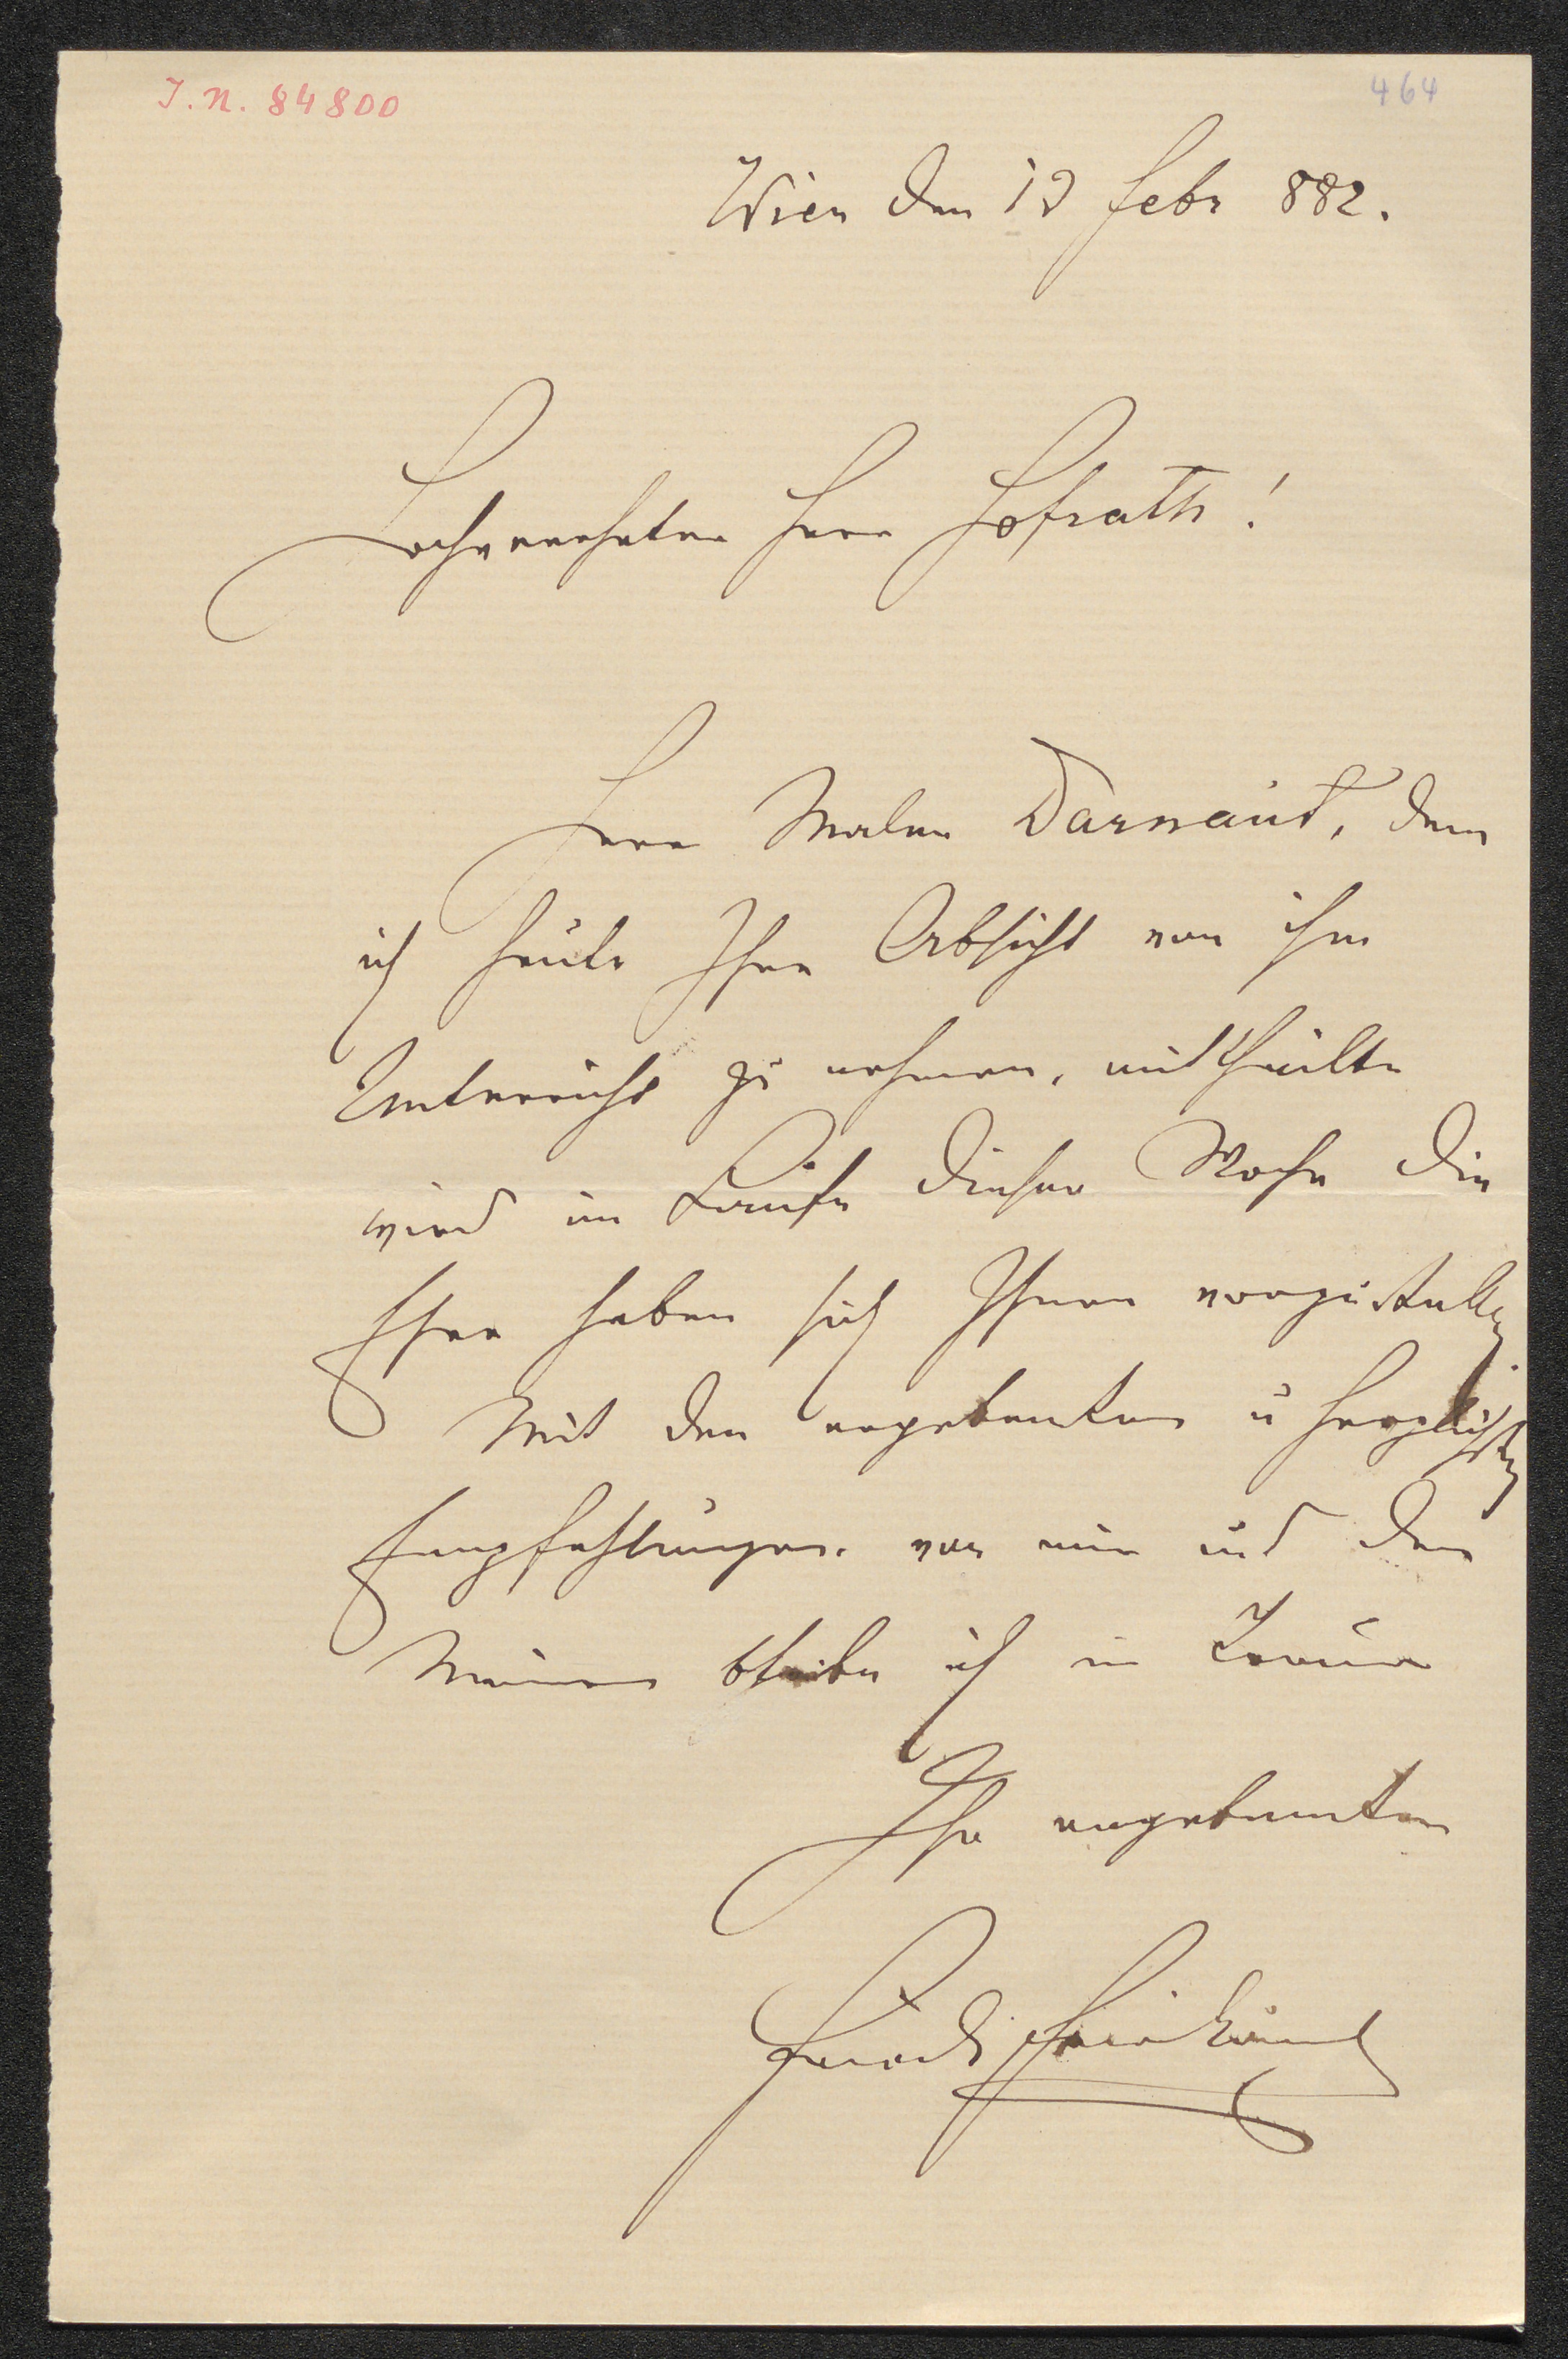 I. N. 84800
464
Wien den 12 Febr 882.
Hochverehrter Herr Hofrath!
Herr Maler Darnaut, dem
ich heute Ihre Absicht von ihm
Unterricht zu nehmen, mittheilte
wird im Laufe dieser Woche die
Ehre haben sich Ihnen vorzustellen
Mit den ergebensten u herzlichsten
Empfehlungen von mir und den
Meinen bleibe ich in Treue
Ihr ergebenster
Friedr